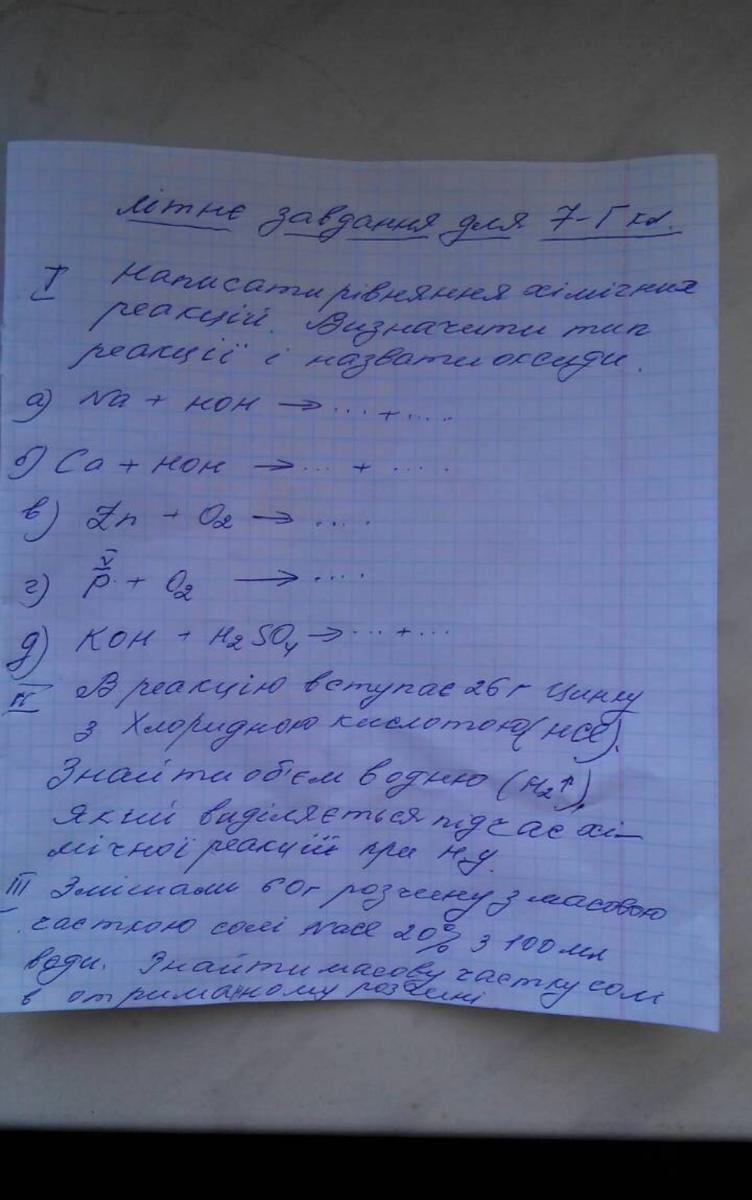 Літнє завдання для 7-Г кл.
I Написати рівняння хімічних
реакцій. Визначити тип
реакції і назвати оксиди.
а) Na + HOH → ... + ....
б) Ca + HOH → ... + ....
в) Zn + O2 → ....
V
г) P + O2 → ....
д) KOH + H2SO4 → ... + ...
II В реакцію вступає 26 г цинку
з Хлоридною кислотою (HCl).
Знайти об'єм водню (H2↑),
який виділяється під час хі-
мічної реакції при н.у.
III Змішали 60г розчину з масовою
часткою солі NaCl 20% з 100 мл
води. Знайти масову частку солі
в отриманому розчині